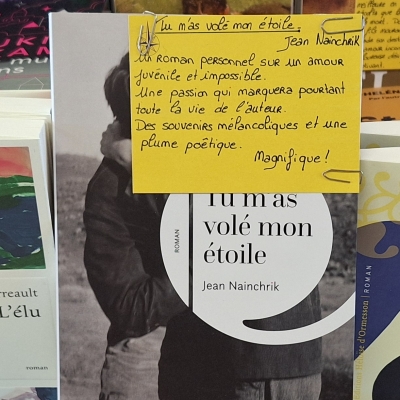 Tu m'as volé mon étoile.
Jean Nainchrik
Un roman personnel sur un amour
juvénile et impossible.
Une passion qui marquera pourtant
toute la vie de l'auteur.
Des souvenirs mélancoliques et une
plume poétique.
Magnifique !
Tu m'as
volé mon
étoile
Jean Nainchrik
ROMAN
rreault
L'élu
roman
d'Ormesson | ROMAN